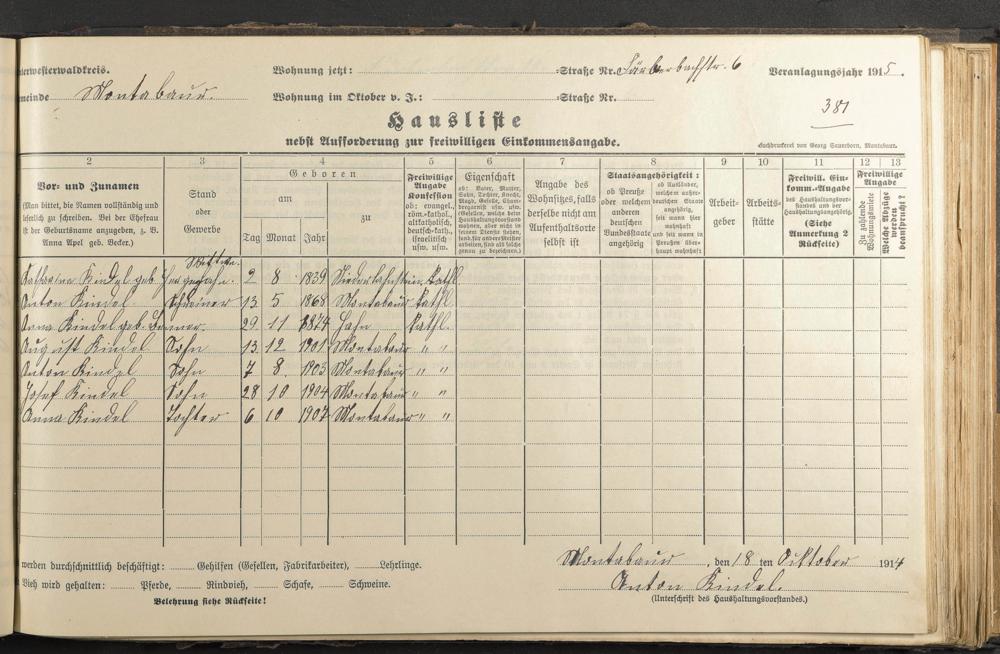 nterwesterwaldkreis. Wohnung jetzt: Straße Nr. Färberbachstr. 6 Veranlagungsjahr 1915.
meinde Montabaur. Wohnung im Oktober v. J.: Straße Nr.
381
Hausliste
nebst Aufforderung zur freiwilligen Einkommensangabe.
Buchdruckerei von Georg Sauerborn, Montabaur.
2 3 4 5 6 7 8 9 10 11 12 13
Vor- und Zunamen
(Man bittet, die Namen vollständig und
leserlich zu schreiben. Bei der Ehefrau
ist der Geburtsname anzugeben, z. B.
Anna Apel geb. Becker.)
Stand
oder
Gewerbe
Geboren
am
Tag Monat Jahr
zu
Freiwillige
Angabe
Konfession
ob: evangel.,
röm.-kathol.,
altkatholisch,
deutsch-kath.,
israelitisch
usw. usw.
Eigenschaft
ob: Vater, Mutter,
Sohn, Tochter, Knecht,
Magd, Geselle,
usw. usw.
Angabe des
Wohnsitzes, falls
derselbe nicht am
Aufenthaltsorte
selbst ist
Staatsangehörigkeit:
ob Preuße
oder welchem
anderen
deutschen
Bundesstaate
angehörig
ob Ausländer,
welchem außer-
deutschen Staate
angehörig,
seit wann hier
wohnhaft
und seit wann in
Preußen über-
haupt wohnhaft
Arbeit-
geber
Arbeits-
stätte
Freiwill. Ein-
komm.-Angabe
des Haushaltungsvor-
standes und der
Haushaltungsangehörig.
(Siehe
Anmerkung 2
Rückseite)
Freiwillige
Angabe
Zu zahlende
Wohnungsmiete
Welche Abzüge
werden
beansprucht?
Witwe.
Katharina Kindel geb. 2 8 1839 Niederlahnstein kathl.
Anton Kindel Schreiner 13 5 1868 Montabaur kathl
Anna Kindel geb. 29 11 1874 Hahn kathl.
August Kindel Sohn 13 12 1901 Montabaur " "
Anton Kindel Sohn 7 8. 1903 Montabaur " "
Josef Kindel Sohn 28 10 1904 Montabaur " "
Anna Kindel Tochter 6 10 1907 Montabaur " "
werden durchschnittlich beschäftigt: Gehilfen (Gesellen, Fabrikarbeiter), Lehrlinge.
Vieh wird gehalten: Pferde, Rindvieh, Schafe, Schweine.
Belehrung siehe Rückseite!
Montabaur, den 18 ten Oktober 1914
Anton Kindel.
(Unterschrift des Haushaltungsvorstandes.)